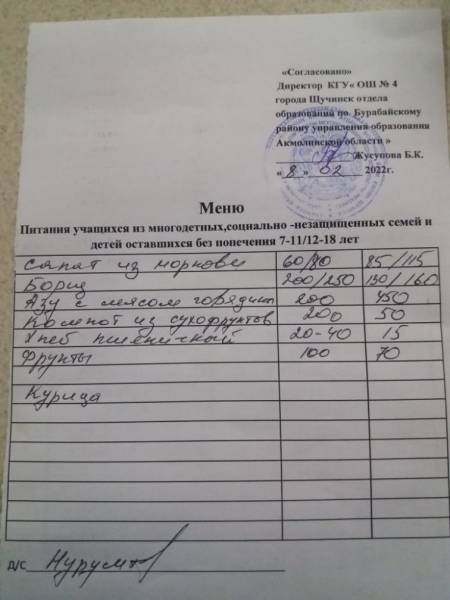 «Согласовано»
Директор КГУ« ОШ № 4
города Щучинск отдела
образования по Бурабайскому
району управления образования
Акмолинской области »
Жусупова Б.К.
« 8 » 02 2022г.
Меню
Питания учащихся из многодетных,социально -незащищенных семей и
детей оставшихся без попечения 7-11/12-18 лет
Салат из моркови 60/80 85/115
Борщ 200/250 130/160
Азу с мясом говядины 200 450
Компот из сухофруктов 200 50
Хлеб пшеничной 20-40 15
Фрукты 100 70
Курица
д/с